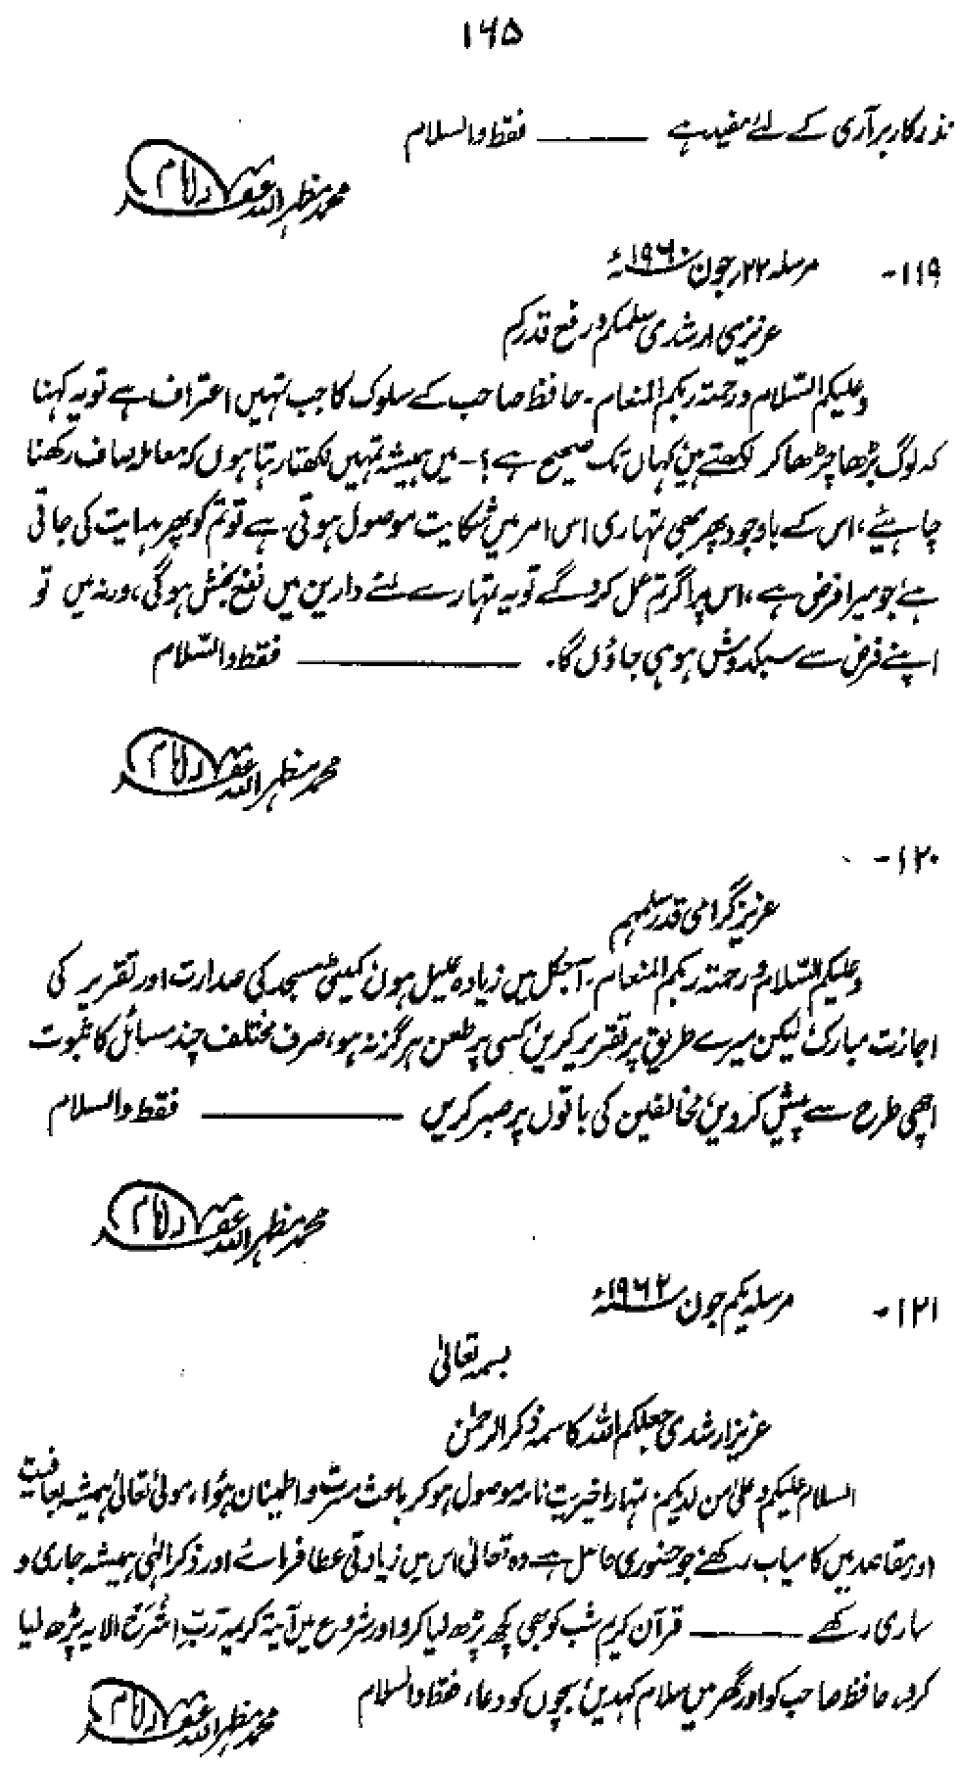 ۱۶۵
نذر کار برآری کے لئے مفید ہے ــــــ فقط والسلام
محمد مظہر اللہ غفرلہ امام
۱۱۹- مرسلہ ۲۲ر جون ۱۹۶۰ء
عزیزی ارشدی سلمکم ورفع قدرکم
وعلیکم السّلام ورحمتہ ربکم المنعام۔ حافظ صاحب کے سلوک کا جب تمہیں اعتراف ہے تو یہ کہنا
کہ لوگ بڑھا چڑھا کر لکھتے ہیں کہاں تک صحیح ہے؟۔ میں ہمیشہ تمہیں لکھتا رہتا ہوں کہ معاملہ صاف رکھنا
چاہئیے، اس کے باوجود پھر بھی تمہاری اس امر میں شکایت موصول ہوتی ہے تو تم کو پھر ہدایت کی جاتی
ہے جو میرا فرض ہے، اس پر اگر تم عمل کرو گے تو یہ تمہارے لئے دارین میں نفع بخش ہوگی، ورنہ میں تو
اپنے فرض سے سبکدوش ہو ہی جاؤں گا۔ ــــــ فقط والسّلام
محمد مظہر اللہ غفرلہ امام
۱۲۰-
عزیز گرامی قدر سلمہم
وعلیکم السّلام ورحمتہ ربکم المنعام۔ آجکل میں زیادہ علیل ہوں کمیٹی مسجد کی صدارت اور تقریر کی
اجازت مبارک لیکن میرے طریق پر تقریر کریں کسی پر طعن ہرگز نہ ہو، صرف مختلف چند مسائل کا ثبوت
اچھی طرح سے پیش کردیں مخالفین کی باتوں پر صبر کریں ــــــ فقط والسلام
محمد مظہر اللہ غفرلہ امام
۱۲۱- مرسلہ یکم جون ۱۹۶۲ء
بسمہ تعالیٰ
عزیز ارشدی جعلکم اللہ کاسمہ ذکر الرحمٰن
السلام علیکم وعلیٰ من لدیکم تمہارا خیریت نامہ موصول ہوکر باعث مسرت و اطمینان ہؤا، مولیٰ تعالیٰ ہمیشہ بعافیت
اور مقاصد میں کامیاب رکھے جو حضوری حاصل ہے وہ تعالیٰ اس میں زیادتی عطا فرمائے اور ذکر الہٰی ہمیشہ جاری و
ساری رکھے ــــــ قرآن کریم شب کو بھی کچھ پڑھ لیا کرو اور شروع میں آیۃ کریمہ رَبِّ اشْرَحْ الایہ پڑھ لیا
کرو، حافظ صاحب کو اور گھر میں سلام کہدیں بچوں کو دعا، فقط والسلام
محمد مظہر اللہ غفرلہ امام